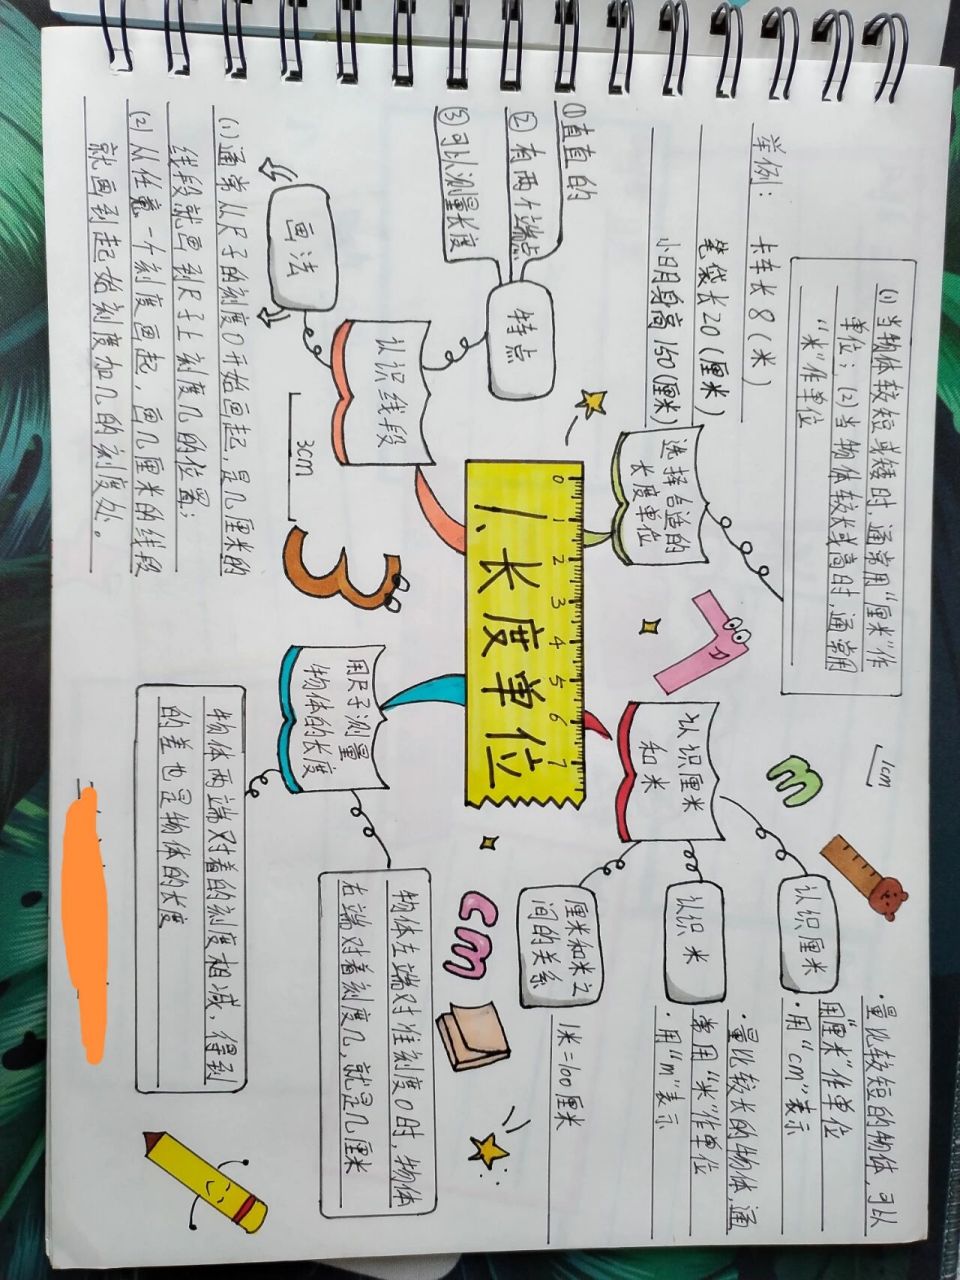 一、长度单位
0 1 2 3 4 5 6 7
选择合适的
长度单位
(1)当物体较短或矮时,通常用“厘米”作
单位;(2)当物体较长或高时,通常用
“米”作单位
举例: 卡车长8(米)
笔袋长20(厘米)
小明身高150(厘米)
认识厘米
和米
认识厘米
·量比较短的物体,可以
用“厘米”作单位
·用“cm”表示
认识米
·量比较长的物体,通
常用“米”作单位
·用“m”表示
厘米和米之
间的关系
1米=100厘米
1cm
m
cm
认识线段
特点
①直直的
②有两个端点
③可以测量长度
画法
(1)通常从尺子的刻度0开始画起,是几厘米的
线段就画到尺子上刻度几的位置;
(2)从任意一个刻度画起,画几厘米的线段
就画到起始刻度加几的刻度处。
3cm
3
用尺子测量
物体的长度
物体左端对准刻度0时,物体
右端对着刻度几,就是几厘米
物体两端对着的刻度相减,得到
的差也是物体的长度